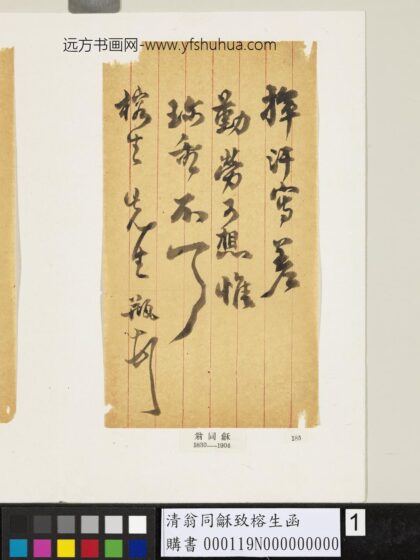 远方书画网-www.yfshuhua.com
揮汗寫差
勤勞可想惟
珍重不一
榕生先生 瓶頓
翁同龢
1830—1904
185
清翁同龢致榕生函
購書 000119N000000000
1